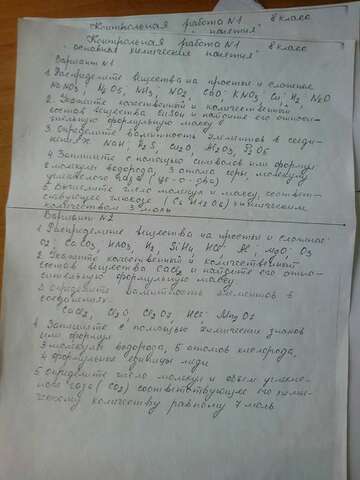 Контрольная работа N1 8 класс
понятия"
Контрольная работа N1 8 класс
"основные химические понятия"
Вариант N1
1. Распределите вещества на простые и сложные
NH3, NO2, CuO, KNO3, Cu, H2, N2O
2. Укажите качественный и количественный
состав вещества и найдите его относи-
тельную формульную массу
3. Определите валентность элементов в соеди-
нениях NaH, Cu2O, Al2O3,
4 Запишите с помощью символов или формул
6 молекулы водорода, 3 атома серы, молекулу
углекислого газа (це-о-два)
5. Вычислите число молекул и массу, соответ-
ствующее глюкозе (C6H12O6) химическим
количеством 3 моль
Вариант N2
1 Распределите вещества на простые и сложные
O2; CaCO3, HNO3, H2, SiH4, HCl, MgO, O3
2. Укажите качественный и количественный
состав вещества CaCl2 и найдите его отно-
сительную формульную массу
3 определите валентность элементов в
соединениях
CaCl2, Cl2O, HCl, Mn2O7
4 Запишите с помощью химических знаков
или формул
3 молекулы водорода, 5 атомов кислорода,
4 формульные единицы
5 определите число молекул и объем углекис-
лого газа (CO2) соответствующее его хими-
ческому количеству равному 7 моль